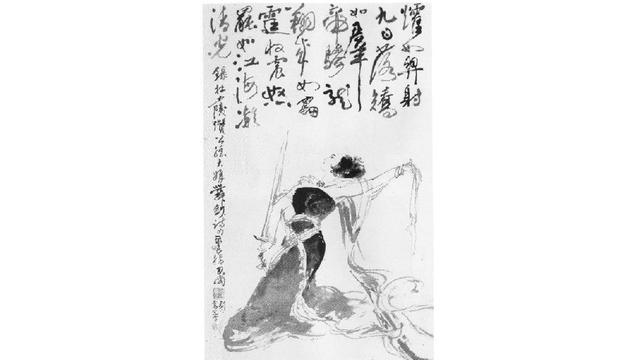 㸌如羿射
九日落矯
如羣
帝驂龍
翔來如雷
霆收震怒
罷如江海凝
清光
錄杜少陵讚公孫大娘舞劍詩